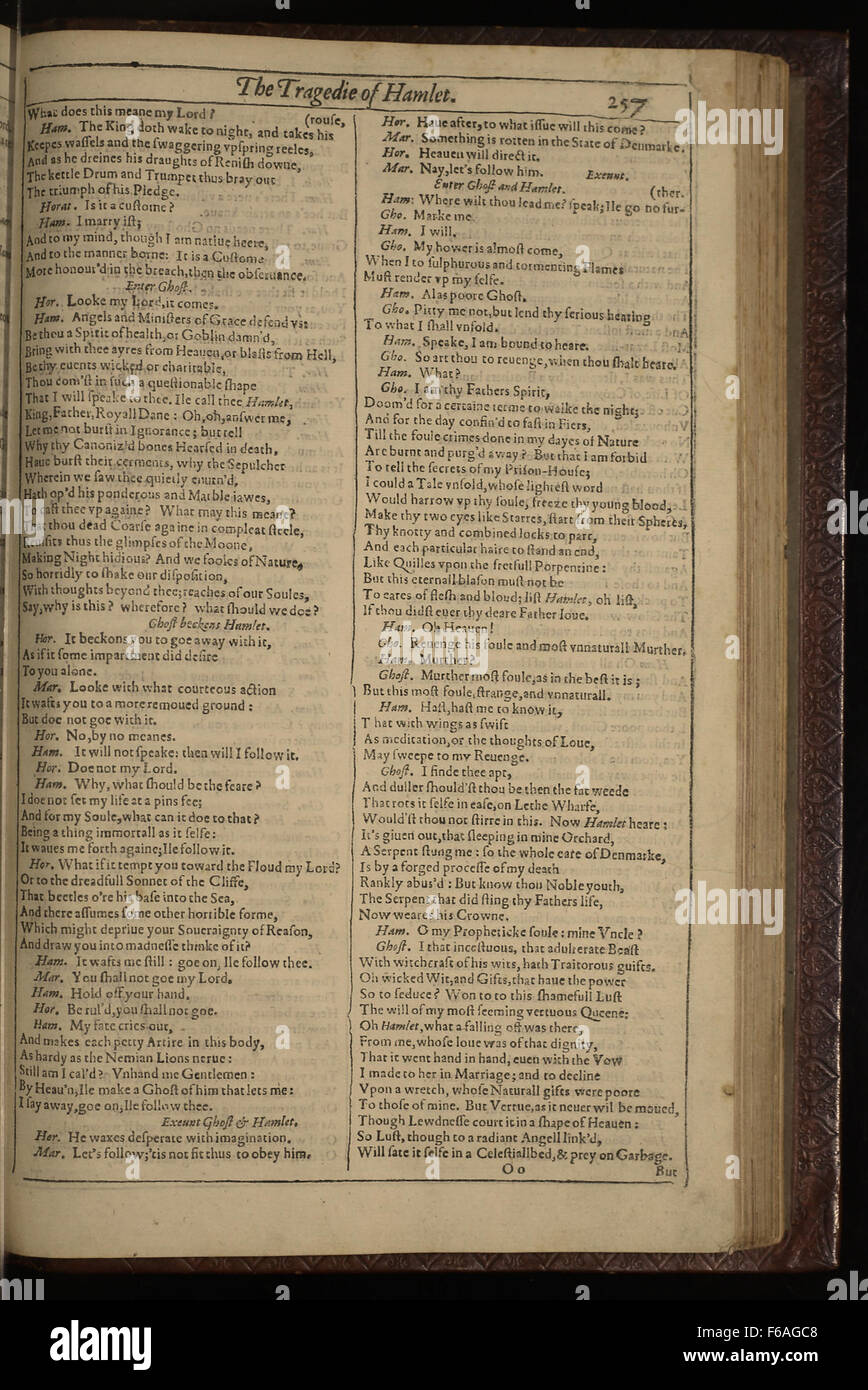 The Tragedie of Hamlet.
257
What does this meane my Lord?
(rouse,
Ham. The King doth wake to night, and takes his
Keepes wassels and the swaggering vpspring reeles,
And as he dreines his draughts of Renish downe,
The kettle Drum and Trumpet thus bray out
The triumph of his Pledge.
Horat. Is it a custome?
Ham. I marry ist;
And to my mind, though I am natiue heere,
And to the manner borne: It is a Custome
More honour'd in the breach, then the obseruance.
Enter Ghost.
Hor. Looke my Lord, it comes.
Ham. Angels and Ministers of Grace defend vs:
Be thou a Spirit of health, or Goblin damn'd,
Bring with thee ayres from Heauen, or blasts from Hell,
Be thy euents wicked or charitable,
Thou com'st in such a questionable shape
That I will speake to thee. Ile call thee Hamlet,
King, Father, Royall Dane: Oh, oh, answer me,
Let me not burst in Ignorance; but tell
Why thy Canoniz'd bones Hearsed in death,
Haue burst their cerments, why the Sepulcher
Wherein we saw thee quietly enurn'd,
Hath op'd his ponderous and Marble iawes,
To cast thee vp againe? What may this meane?
That thou dead Coarse againe in compleat steele,
thus the glimpses of the Moone,
Making Night hidious? And we fooles of Nature,
So horridly to shake our disposition,
With thoughts beyond thee; reaches of our Soules,
Say, why is this? wherefore? what should we doe?
Ghost beckens Hamlet.
Hor. It beckons you to goe away with it,
As if it some impartment did desire
To you alone.
Mar. Looke with what courteous action
It wafts you to a more remoued ground:
But doe not goe with it.
Hor. No, by no meanes.
Ham. It will not speake: then will I follow it.
Hor. Doe not my Lord.
Ham. Why, what should be the feare?
I doe not set my life at a pins fee;
And for my Soule, what can it doe to that?
Being a thing immortall as it selfe:
It waues me forth againe; Ile follow it.
Hor. What if it tempt you toward the Floud my Lord?
Or to the dreadfull Sonnet of the Cliffe,
That beetles o're his base into the Sea,
And there assumes some other horrible forme,
Which might depriue your Soueraignty of Reason,
And draw you into madnesse thinke of it?
Ham. It wafts me still: goe on, Ile follow thee.
Mar. You shall not goe my Lord.
Ham. Hold off your hand.
Hor. Be rul'd, you shall not goe.
Ham. My fate cries out,
And makes each petty Artire in this body,
As hardy as the Nemian Lions nerue:
Still am I cal'd? Vnhand me Gentlemen:
By Heau'n, Ile make a Ghost of him that lets me:
I say away, goe on, Ile follow thee.
Exeunt Ghost & Hamlet.
Hor. He waxes desperate with imagination.
Mar. Let's follow; 'tis not fit thus to obey him.
Hor. Haue after, to what issue will this come?
Mar. Something is rotten in the State of Denmarke.
Hor. Heauen will direct it.
Mar. Nay, let's follow him. Exeunt.
Enter Ghost and Hamlet.
(ther.
Ham. Where wilt thou lead me? speak; Ile go no fur-
Gho. Marke me.
Ham. I will.
Gho. My hower is almost come,
When I to sulphurous and tormenting Flames
Must render vp my selfe.
Ham. Alas poore Ghost.
Gho. Pitty me not, but lend thy serious hearing
To what I shall vnfold.
Ham. Speake, I am bound to heare.
Gho. So art thou to reuenge, when thou shalt heare.
Ham. What?
Gho. I am thy Fathers Spirit,
Doom'd for a certaine terme to walke the night;
And for the day confin'd to fast in Fiers,
Till the foule crimes done in my dayes of Nature
Are burnt and purg'd away? But that i am forbid
To tell the secrets of my Prison-House;
i could a Tale vnfold, whose lightest word
Would harrow vp thy soule, freeze thy young blood,
Make thy two eyes like Starres, start from their Spheres,
Thy knotty and combined locks to part,
And each particular haire to stand an end,
Like Quilles vpon the fretfull Porpentine:
But this eternall blason must not be
To eares of flesh and bloud; list Hamlet, oh list,
If thou didst euer thy deare Father loue.
Ham. Oh Heauen!
Gho. Reuenge his foule and most vnnaturall Murther.
Ham. Murther?
Ghost. Murther most foule, as in the best it is;
But this most foule, strange, and vnnaturall.
Ham. Hast, hast me to know it,
That with wings as swift
As meditation, or the thoughts of Loue,
May sweepe to my Reuenge.
Ghost. I finde thee apt,
And duller should'st thou be then the fat weede
That rots it selfe in ease, on Lethe Wharfe,
Would'st thou not stirre in this. Now Hamlet heare:
It's giuen out, that sleeping in mine Orchard,
A Serpent stung me: so the whole eare of Denmarke,
Is by a forged processe of my death
Rankly abus'd: But know thou Noble youth,
The Serpent that did sting thy Fathers life,
Now weares his Crowne.
Ham. O my Propheticke soule: mine Vncle?
Ghost. I that incestuous, that adulterate Beast
With witchcraft of his wits, hath Traitorous guifts.
Oh wicked Wit, and Gifts, that haue the power
So to seduce? Won to to this shamefull Lust
The will of my most seeming vertuous Queene:
Oh Hamlet, what a falling off was there,
From me, whose loue was of that dignity,
That it went hand in hand, euen with the Vow
I made to her in Marriage; and to decline
Vpon a wretch, whose Naturall gifts were poore
To those of mine. But Vertue, as it neuer wil be moued,
Though Lewdnesse court it in a shape of Heauen:
So Lust, though to a radiant Angell link'd,
Will sate it selfe in a Celestiallbed, & prey on Garbage.
Oo
But
alamy
Image ID: F6AGC8
www.alamy.com